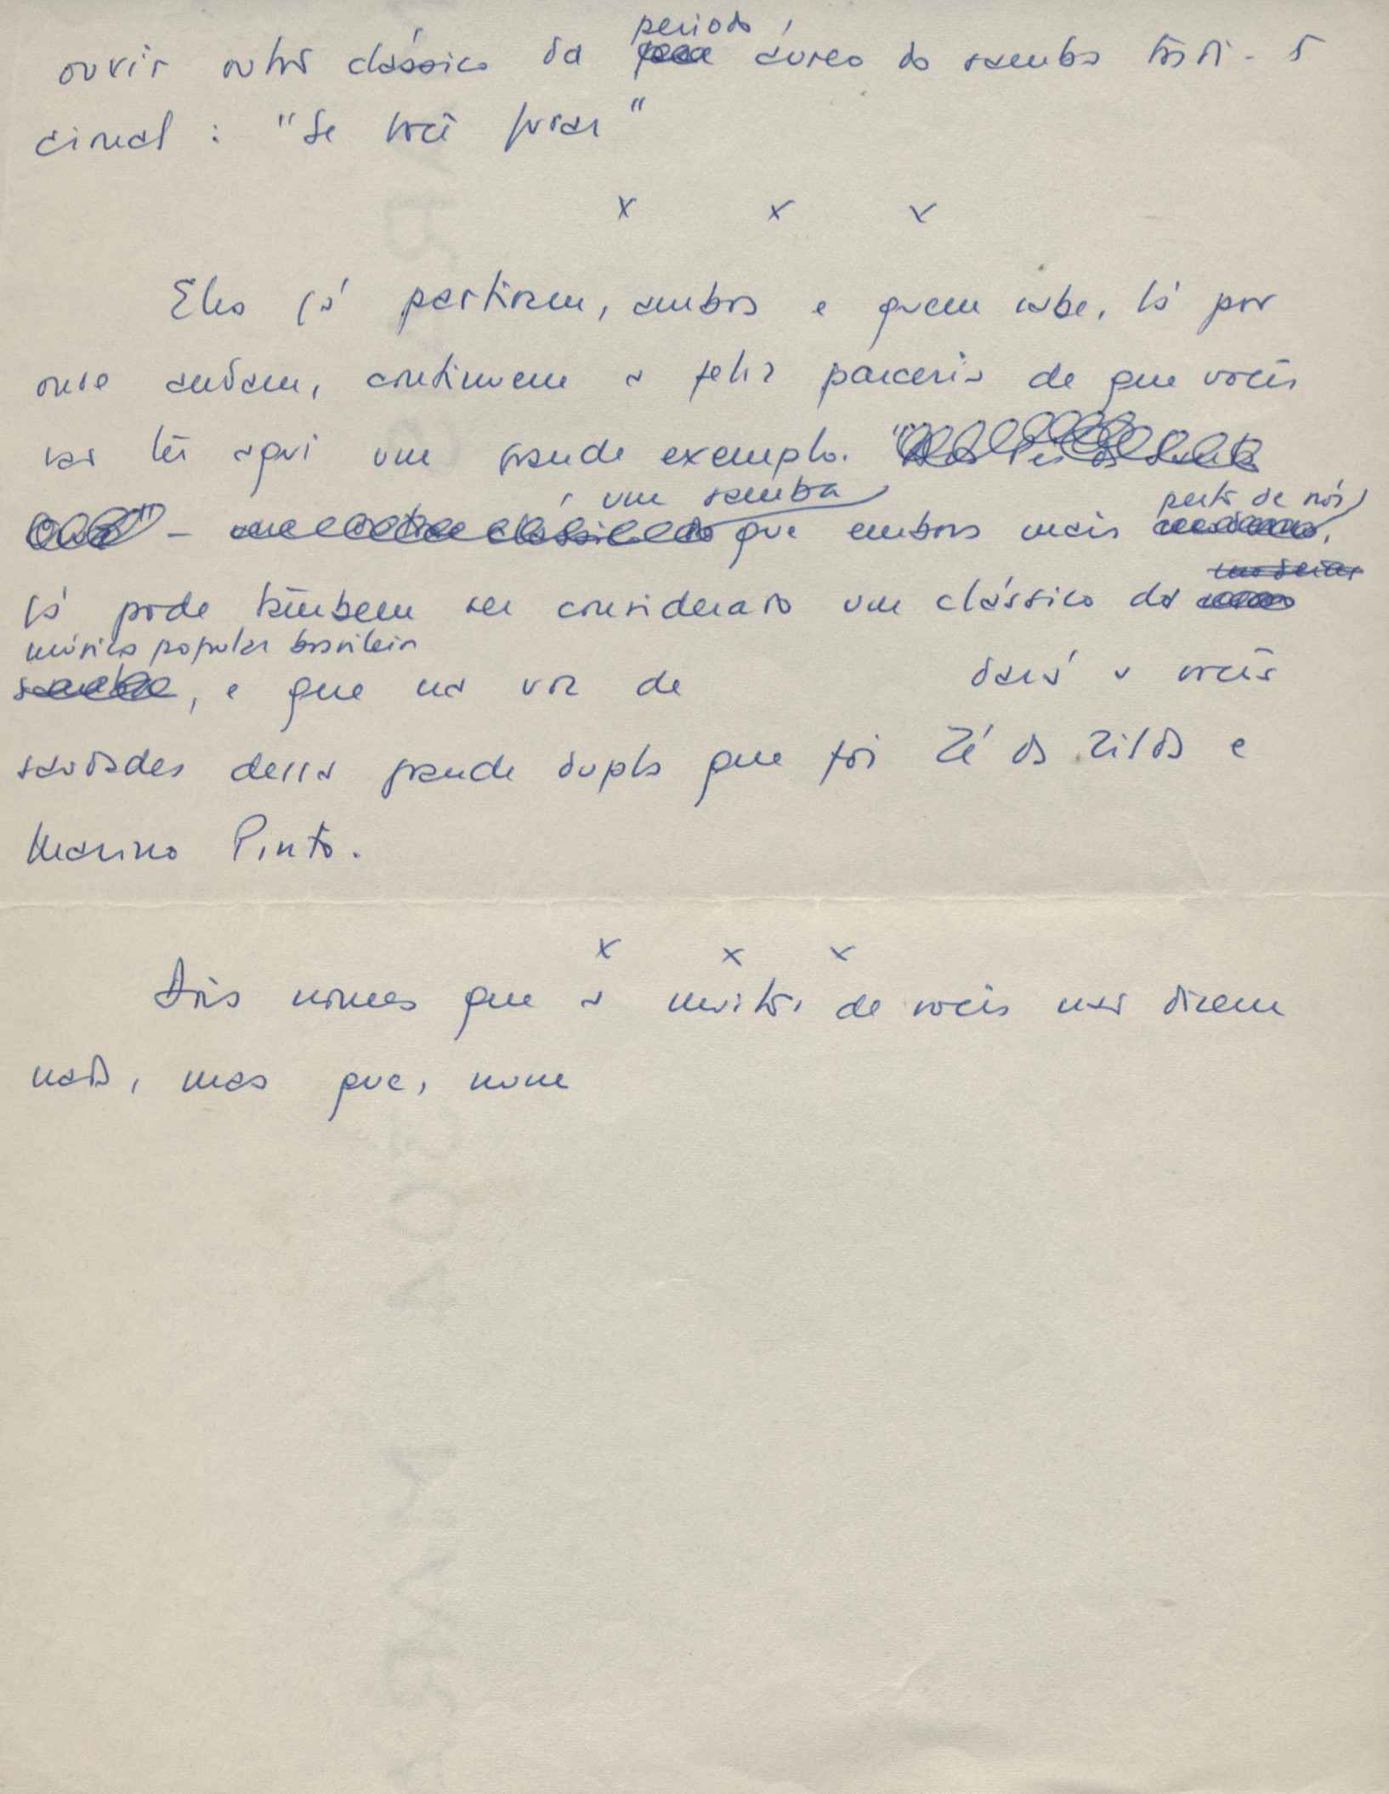 período
ouvir outro clássico da áureo do samba tradi-
cional: "Se você jurar"
x x x
Eles já partiram, ambos e quem sabe, lá por
onde andam, continuem a feliz parceria de que vocês
vão ter aqui um grande exemplo.
um samba perto de nós,
– que embora mais
já pode também ser considerado um clássico da
música popular brasileira
, e que na voz de dará a vocês
saudades dessa grande dupla que foi Zé da Zilda e
Marino Pinto.
x x x
Dois nomes que a muitos de vocês não dizem
nada, mas que, num